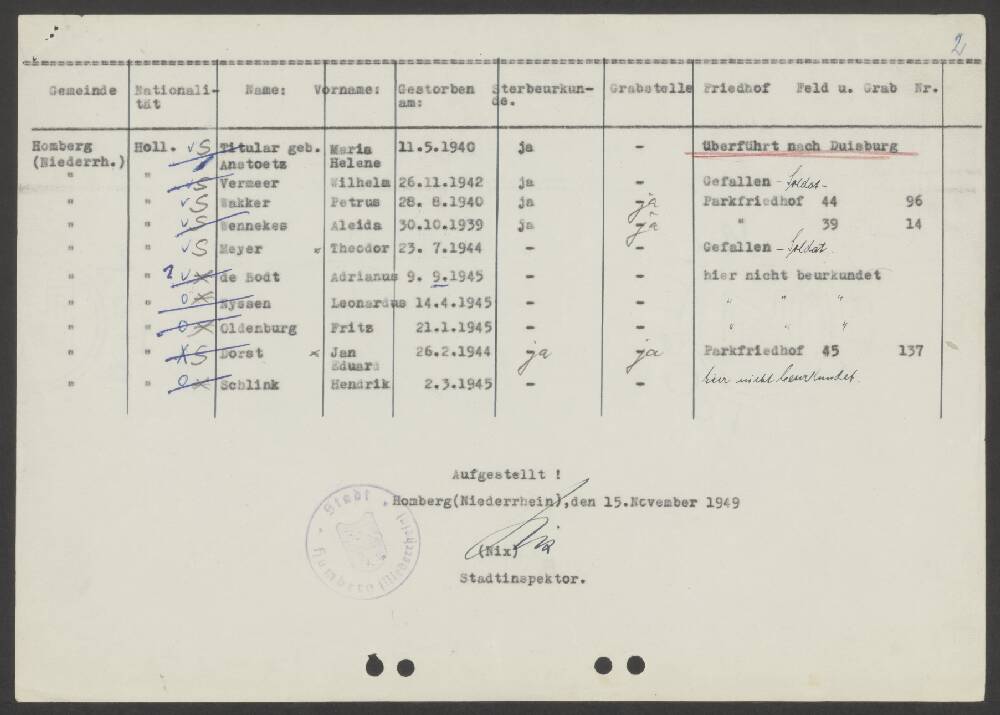 2
Gemeinde Nationali- Name: Vorname: Gestorben Sterbeurkun- Grabstelle Friedhof Feld u. Grab Nr.
tät am: de.
Homberg Holl. v S Titular geb. Maria 11.5.1940 ja - überführt nach Duisburg
(Niederrh.) Anstoetz Helene
" " v S Vermeer Wilhelm 26.11.1942 ja - Gefallen - Soldat -
" " v S Wakker Petrus 28. 8.1940 ja - ja Parkfriedhof 44 96
" " v S Wennekes Aleida 30.10.1939 ja - ja " 39 14
" " v S Meyer x Theodor 23. 7.1944 - - Gefallen - Soldat.
" " ? v x de Bodt Adrianus 9. 9.1945 - - hier nicht beurkundet
" " o x Nyssen Leonardus 14.4.1945 - - " " "
" " o x Oldenburg Fritz 21.1.1945 - - " " "
" " x S Dorst x Jan 26.2.1944 ja ja Parkfriedhof 45 137
Eduard
" " o x Schlink Hendrik 2.3.1945 - - hier nicht beurkundet.
Aufgestellt !
Homberg(Niederrhein),den 15.November 1949
Nix
(Nix)
Stadtinspektor.
Stadt Homberg (Niederrhein)